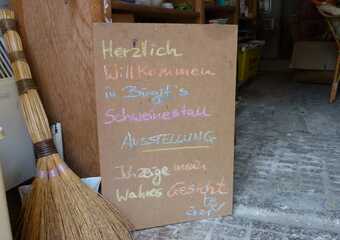 Herzlich
Willkommen
in Birgit's
Schweinestall
AUSSTELLUNG
Ich zeige mein
Wahres Gesicht